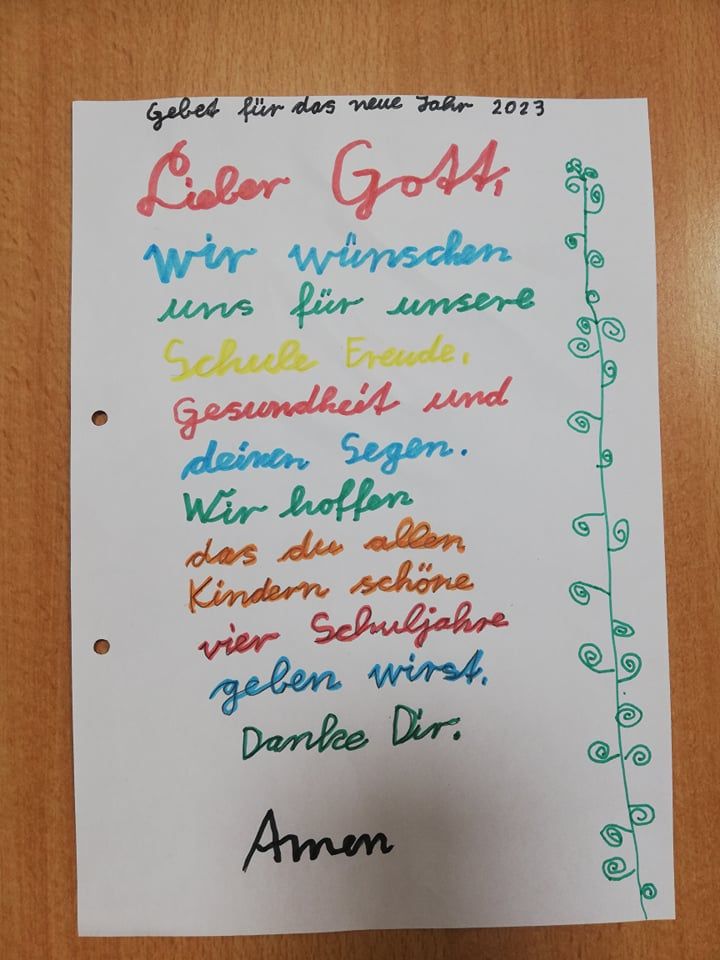 Gebet für das neue Jahr 2023
Lieber Gott,
Wir wünschen
uns für unsere
Schule Freude,
Gesundheit und
deinen Segen.
Wir hoffen
das du allen
Kindern schöne
vier Schuljahre
geben wirst.
Danke Dir.
Amen